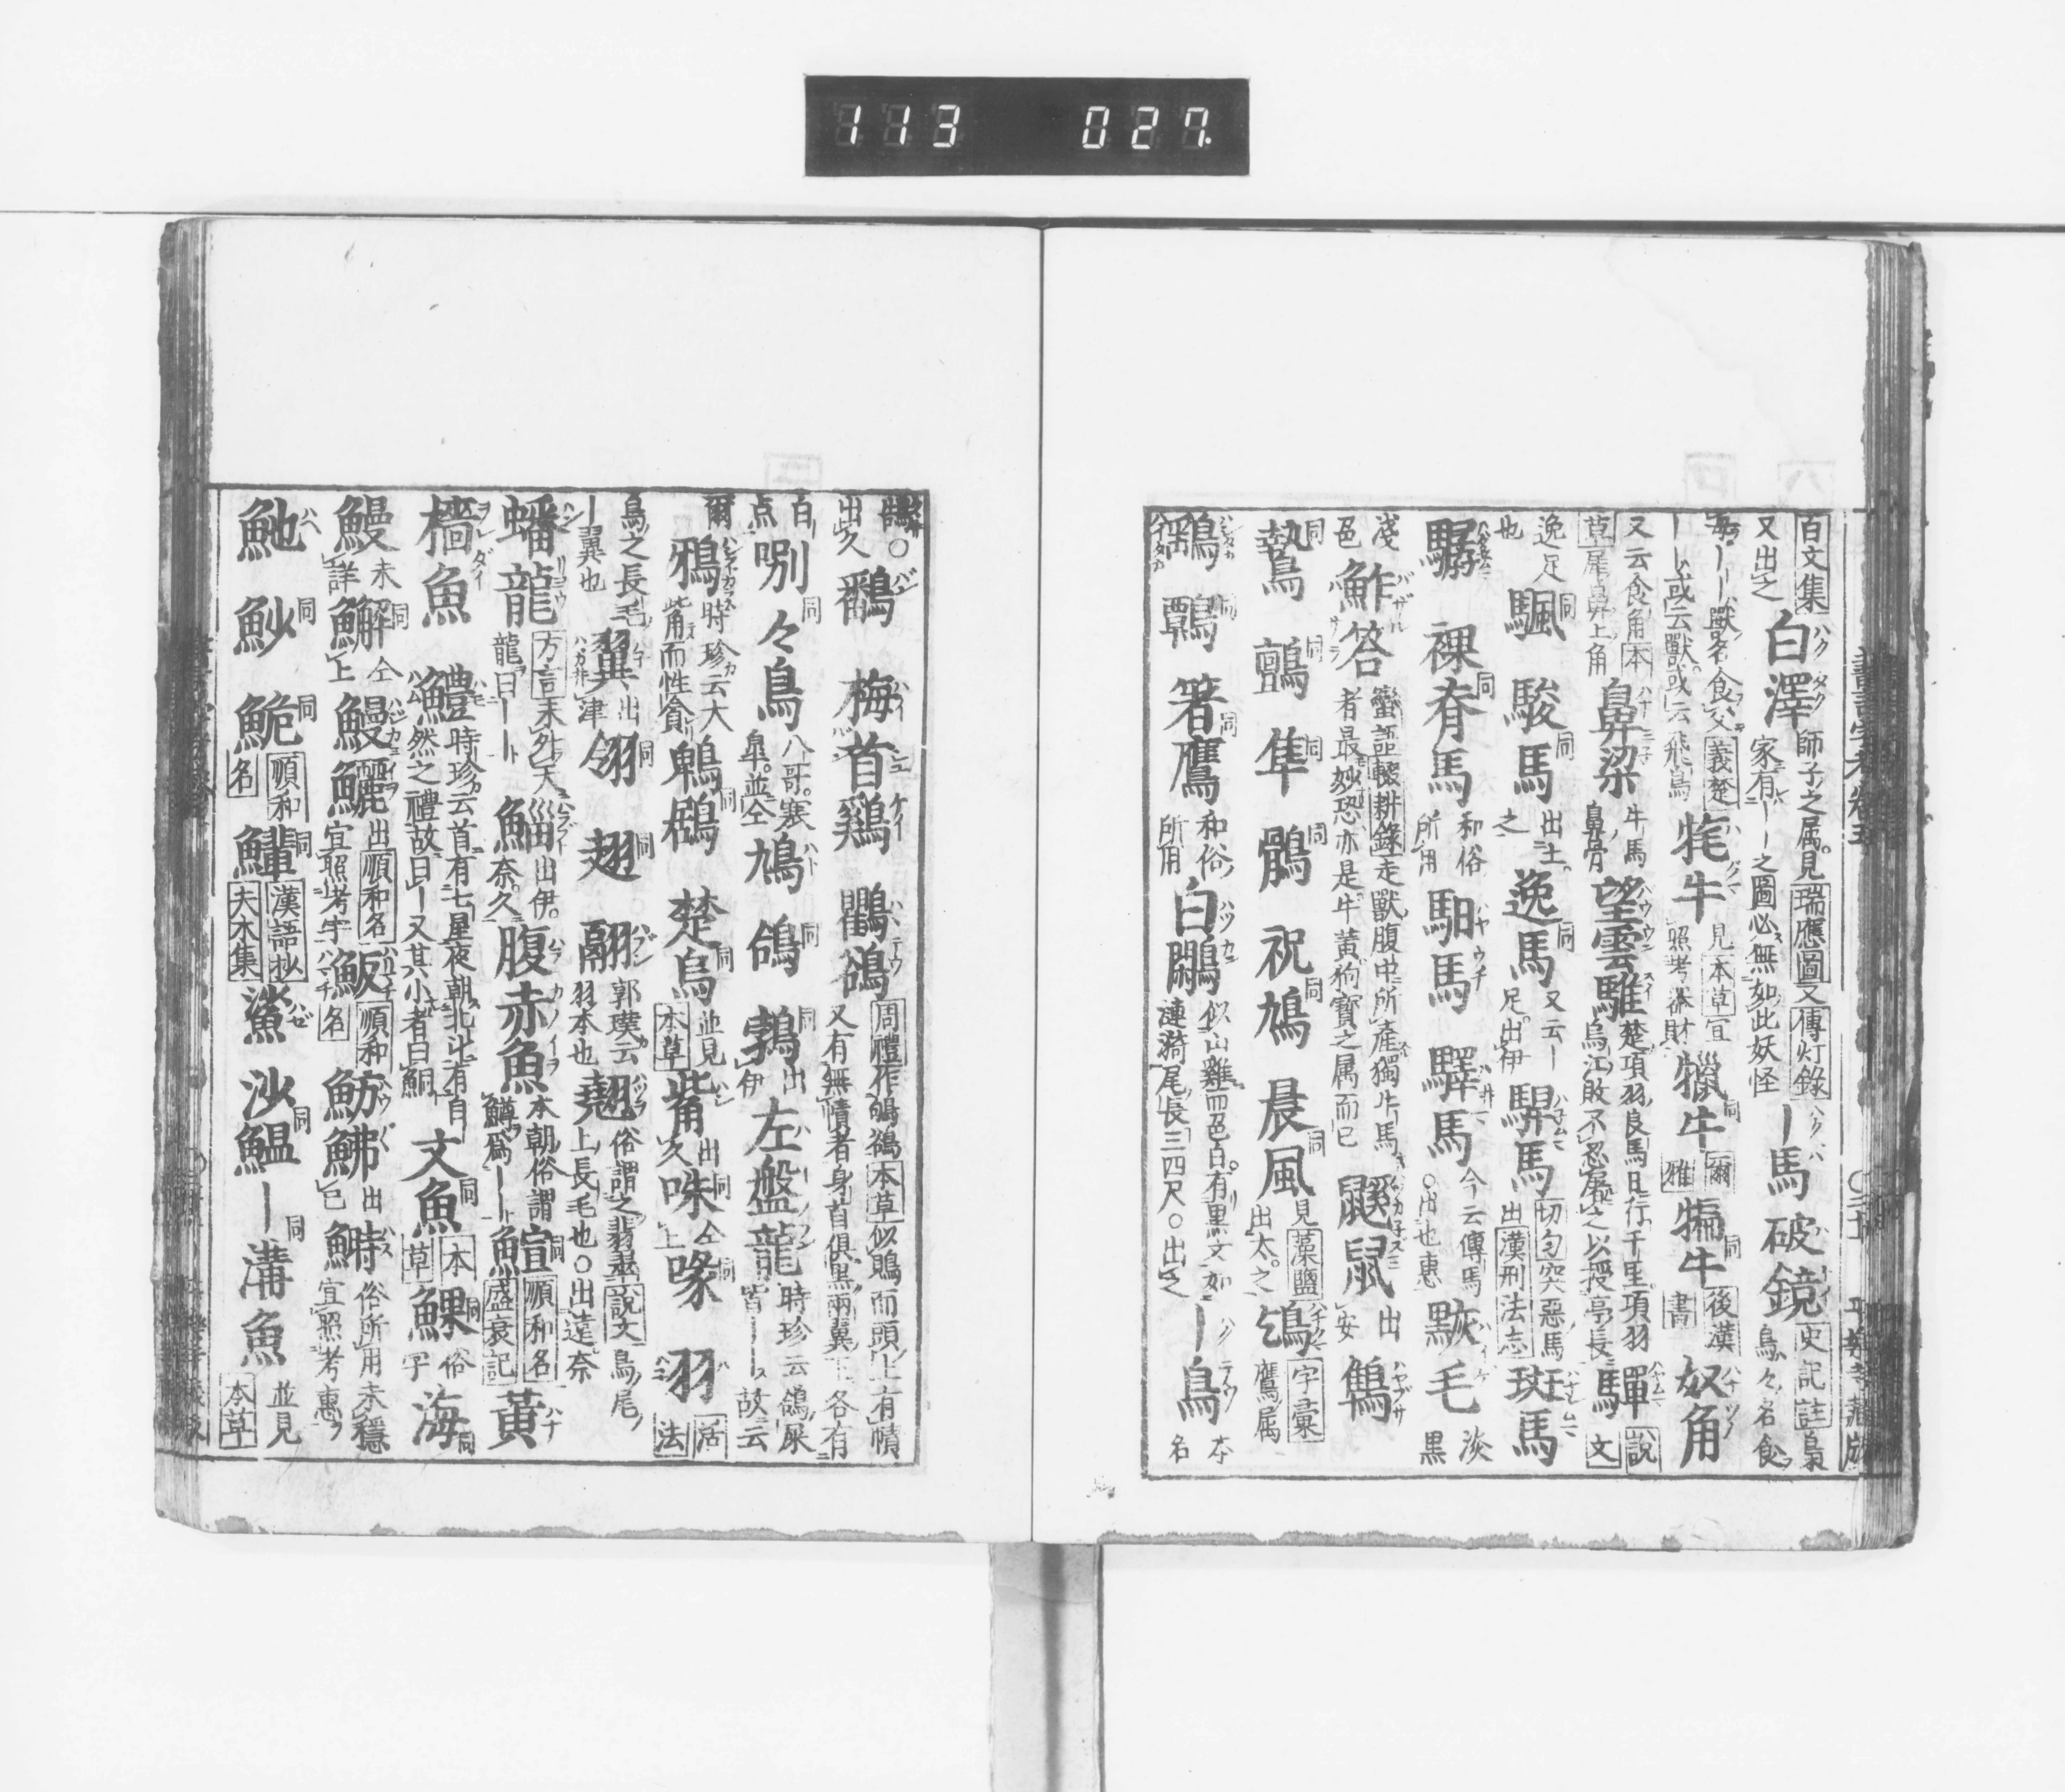 113 027
百文集又出之 白澤 師子之属見瑞應圖又傳灯錄家有ーー之圖必無如此妖怪 ー馬 破鏡 史記註梟鳥々名食
母ーー獸名食父義楚ーー或云獸或云飛鳥 牦牛 見本草宜照考器財 犣牛 爾雅 犏牛 後漢書 奴角
又云食角本草犀鼻上角 鼻梁 牛馬鼻骨 望雲騅 楚項羽良馬日行千里項羽烏江敗不忍殺之以授亭長 騨 說文
逸足也 颿 駿馬 出土之 逸馬 又云ー足出伊 騂馬 切勻突惡馬出漢刑法志 斑馬
驏 裸脊馬 和俗所用 馹馬 驛馬 今云傳馬○出也惠 黢毛 淡黒
淺色 鮓答 蠻語輟耕錄走獸腹中所產獨牛馬者最妙恐亦是牛黃狗寶之属而已 鼷鼠 出安 鶽
鷙 鸇 隼 鶻 祝鳩 晨風 見藻鹽出太之 鳹 字彙鷹属
鷂 鷣 箸鷹 和俗所用 白鷴 似山雞而色白有黒文如漣漪尾長三四尺○出之 ー鳥 本名
鵠○出久 鷭 梅首鷄 鸜鵒 周禮作鴝鵒本草似鵙而頭上有幘又有無幘者身首俱黒兩翼下各有
白点 唎々鳥 八哥寒皐並仝 鳩 鴿 鵓 出伊 左盤龍 時珍云鴿屎皆ーー故云
爾 鴉 時珍云大觜而性貪 鵯鶋 楚烏 並見本草 觜 出久 咮 仝上 喙 羽 活法
鳥之長毛ー翼也 翼 出津 翎 翅 翮 郭璞云羽本也 翹 俗謂之翡翠說文鳥尾上長毛也○出遠奈
蟠龍 方言未升天龍曰ーー 鯔 出伊奈久 腹赤魚 本朝俗謂鱒爲ーー 鰚 順和名盛衰記 黃
檣魚 鱧 時珍云首有七星夜朝北斗有自然之禮故曰ー又其小者曰鮦 文魚 本草 鰥 俗字 海
鰻 未詳 鱓 仝上 鰻鱺 出順和名宜照考宇 魬 順和名 魴鮄 出已 鰣 俗所用未穩宜照考惠
魤 魦 鮠 順和名 鯶 漢語抄夫木集 鯊 沙鰛 ー溝魚 並見本草